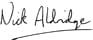 Nick Aldridge